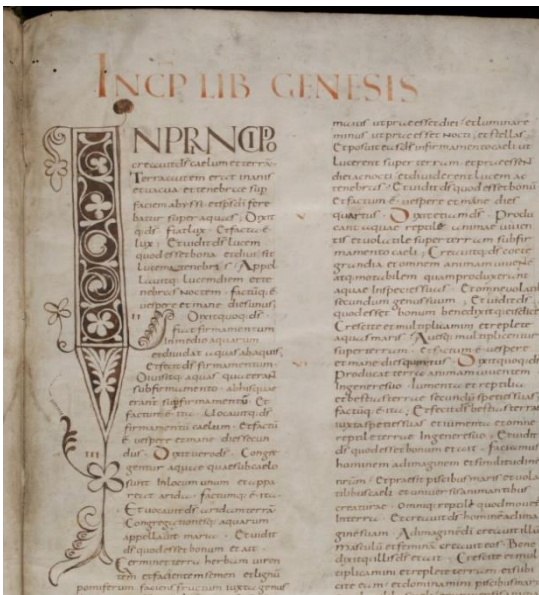 INCP LIB GENESIS
INPRNCIPO
creauit ds caelum et terrā.
Terra autem erat inanis
et uacua et tenebrae sup
faciem abyssi et sps di fere
batur super aquas. Dixit
q; ds fiat lux. Et facta ē
lux. Et uidit ds lucem
quod esset bona et diuisit
lucem a tenebris. Appel
lauitq; lucem diem et te
nebras noctem. factūq; ē
uespere et mane dies unus.
II Dixit quoq; ds.
fiat firmamentum
in medio aquarum
et diuidat aquas ab aquis.
Et fecit ds firmamentum.
Diuisitq; aquas quae erant
sub firmamento. ab his quae
erant sup firmamentū. Et
factum ē ita. Uocauitq; ds
firmamentū caelum. Et factū
ē uespere et mane dies secun
III dus. Dixit uero ds. Congre
gentur aquae quae sub caelo
sunt in locum unum et appa
reat arida. factumq; ē ita.
Et uocauit ds aridam terrā
Congregationesq; aquarum
appellauit maria. Et uidit
ds quod esset bonum et ait.
Germinet terra herbam uiren
tem et facientem semen et lignū
pomiferum faciens fructum iuxta genus
maius ut praeesset diei et luminare
minus ut praeesset nocti et stellas.
Et posuit eas ds in firmamento caeli ut
lucerent super terram et praeessent
diei ac nocti et diuiderent lucem ac
tenebras. Et uidit ds quod esset bonū
Et factum ē uespere et mane dies
quartus. Dixit etiam ds. Produ
cant aquae reptile animae uiuen
tis et uolatile super terram sub fir
mamento caeli. Creauitq; ds coete
grandia et omnem animam uiuentē
atq; motabilem quam produxerant
aquae in species suas. Et omne uolatile
secundum genus suum. Et uidit ds
quod esset bonum benedixitq; eis dicens
Crescite et multiplicamini et replete
aquas maris. Auesq; multiplicentur
super terram. Et factum ē uespere
et mane dies quintus. Dixit quoq; ds
Producat terra animam uiuentem
in genere suo iumenta et reptilia
et bestias terrae secundū species suas
factūq; ē ita. Et fecit ds bestias terrae
iuxta species suas et iumenta et omne
reptile terrae in genere suo. Et uidit
ds quod esset bonum et ait. faciamus
hominem ad imaginem et similitudinē
nram. Et praesit piscibus maris et uola
tilibus caeli et uniuersis animantibus
creaturae. Omniq; reptili quod mouetur
in terra. Et creauit ds hominē ad ima
ginē suam. Ad imaginē di creauit illū
masculū et feminā creauit eos. Bene
dixitq; illis ds et ait. Crescite et mul
tiplicamini et replete terram et subi
cite eam et dominamini piscibus maris